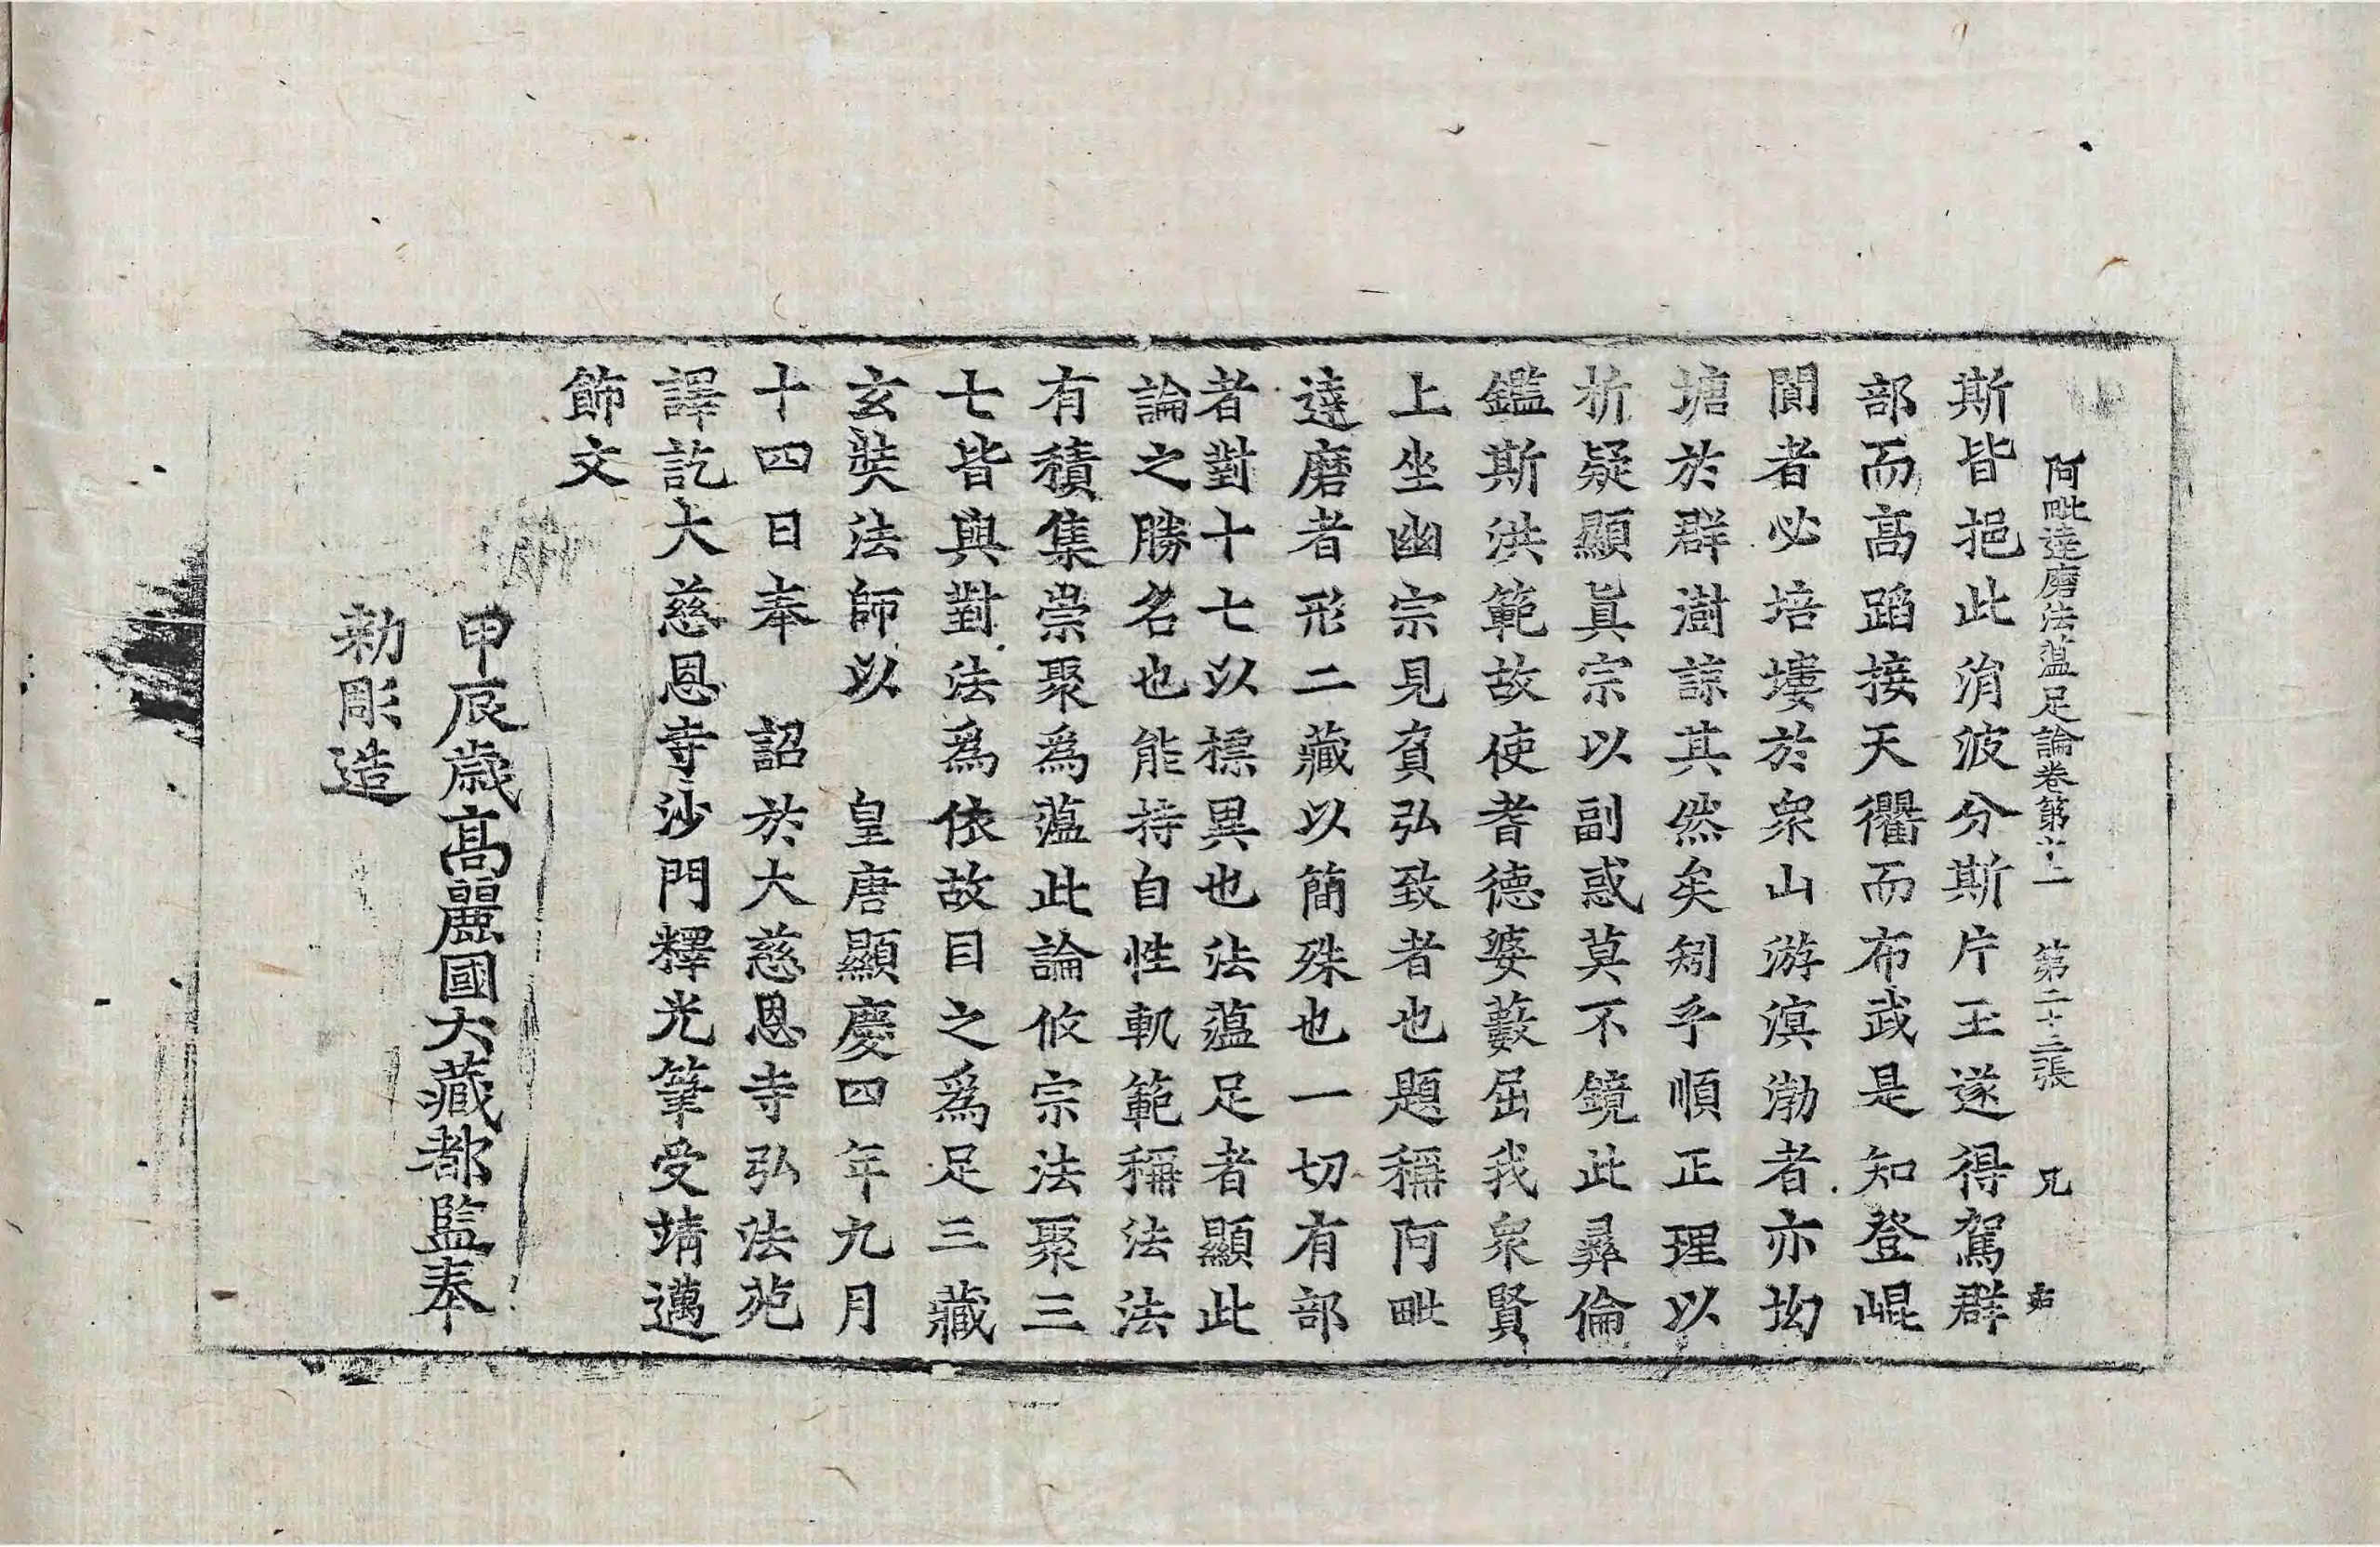 阿毗達磨法蘊足論卷第十二 第二十三張 兄
斯皆挹此涓波分斯片玉遂得駕群
部而高蹈接天衢而布武是知登崐
閬者必培塿於衆山游溟渤者亦坳
塘於群澍諒其然矣矧乎順正理以
析疑顯眞宗以副惑莫不鏡此彛倫
鑑斯洪範故使耆德婆藪屈我衆賢
上坐幽宗見負弘致者也題稱阿毗
達磨者形二藏以簡殊也一切有部
者對十七以標異也法蘊足者顯此
論之勝名也能持自性軌範稱法法
有積集崇聚爲蘊此論攸宗法聚三
七皆與對法爲依故目之爲足三藏
玄奘法師以 皇唐顯慶四年九月
十四日奉 詔於大慈恩寺弘法苑
譯訖大慈恩寺沙門釋光筆受靖邁
飾文
甲辰歲高麗國大藏都監奉
勅彫造